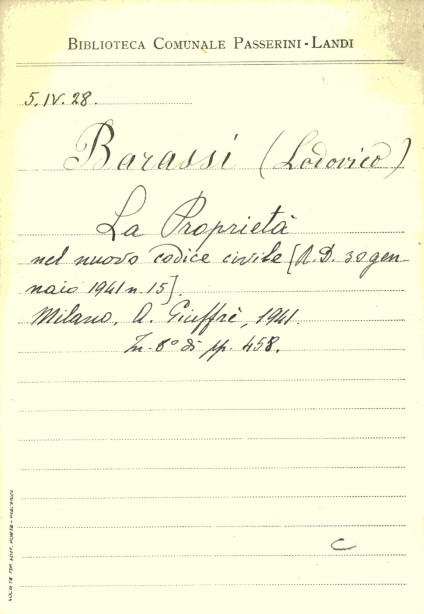 BIBLIOTECA COMUNALE PASSERINI-LANDI
5.IV.28.
Barassi (Lodovico)
La Proprietà
nel nuovo codice civile [R.D. 30 gen-
naio 1941 n. 15].
Milano. A. Giuffrè, 1941.
In-8° di pp. 458.
C